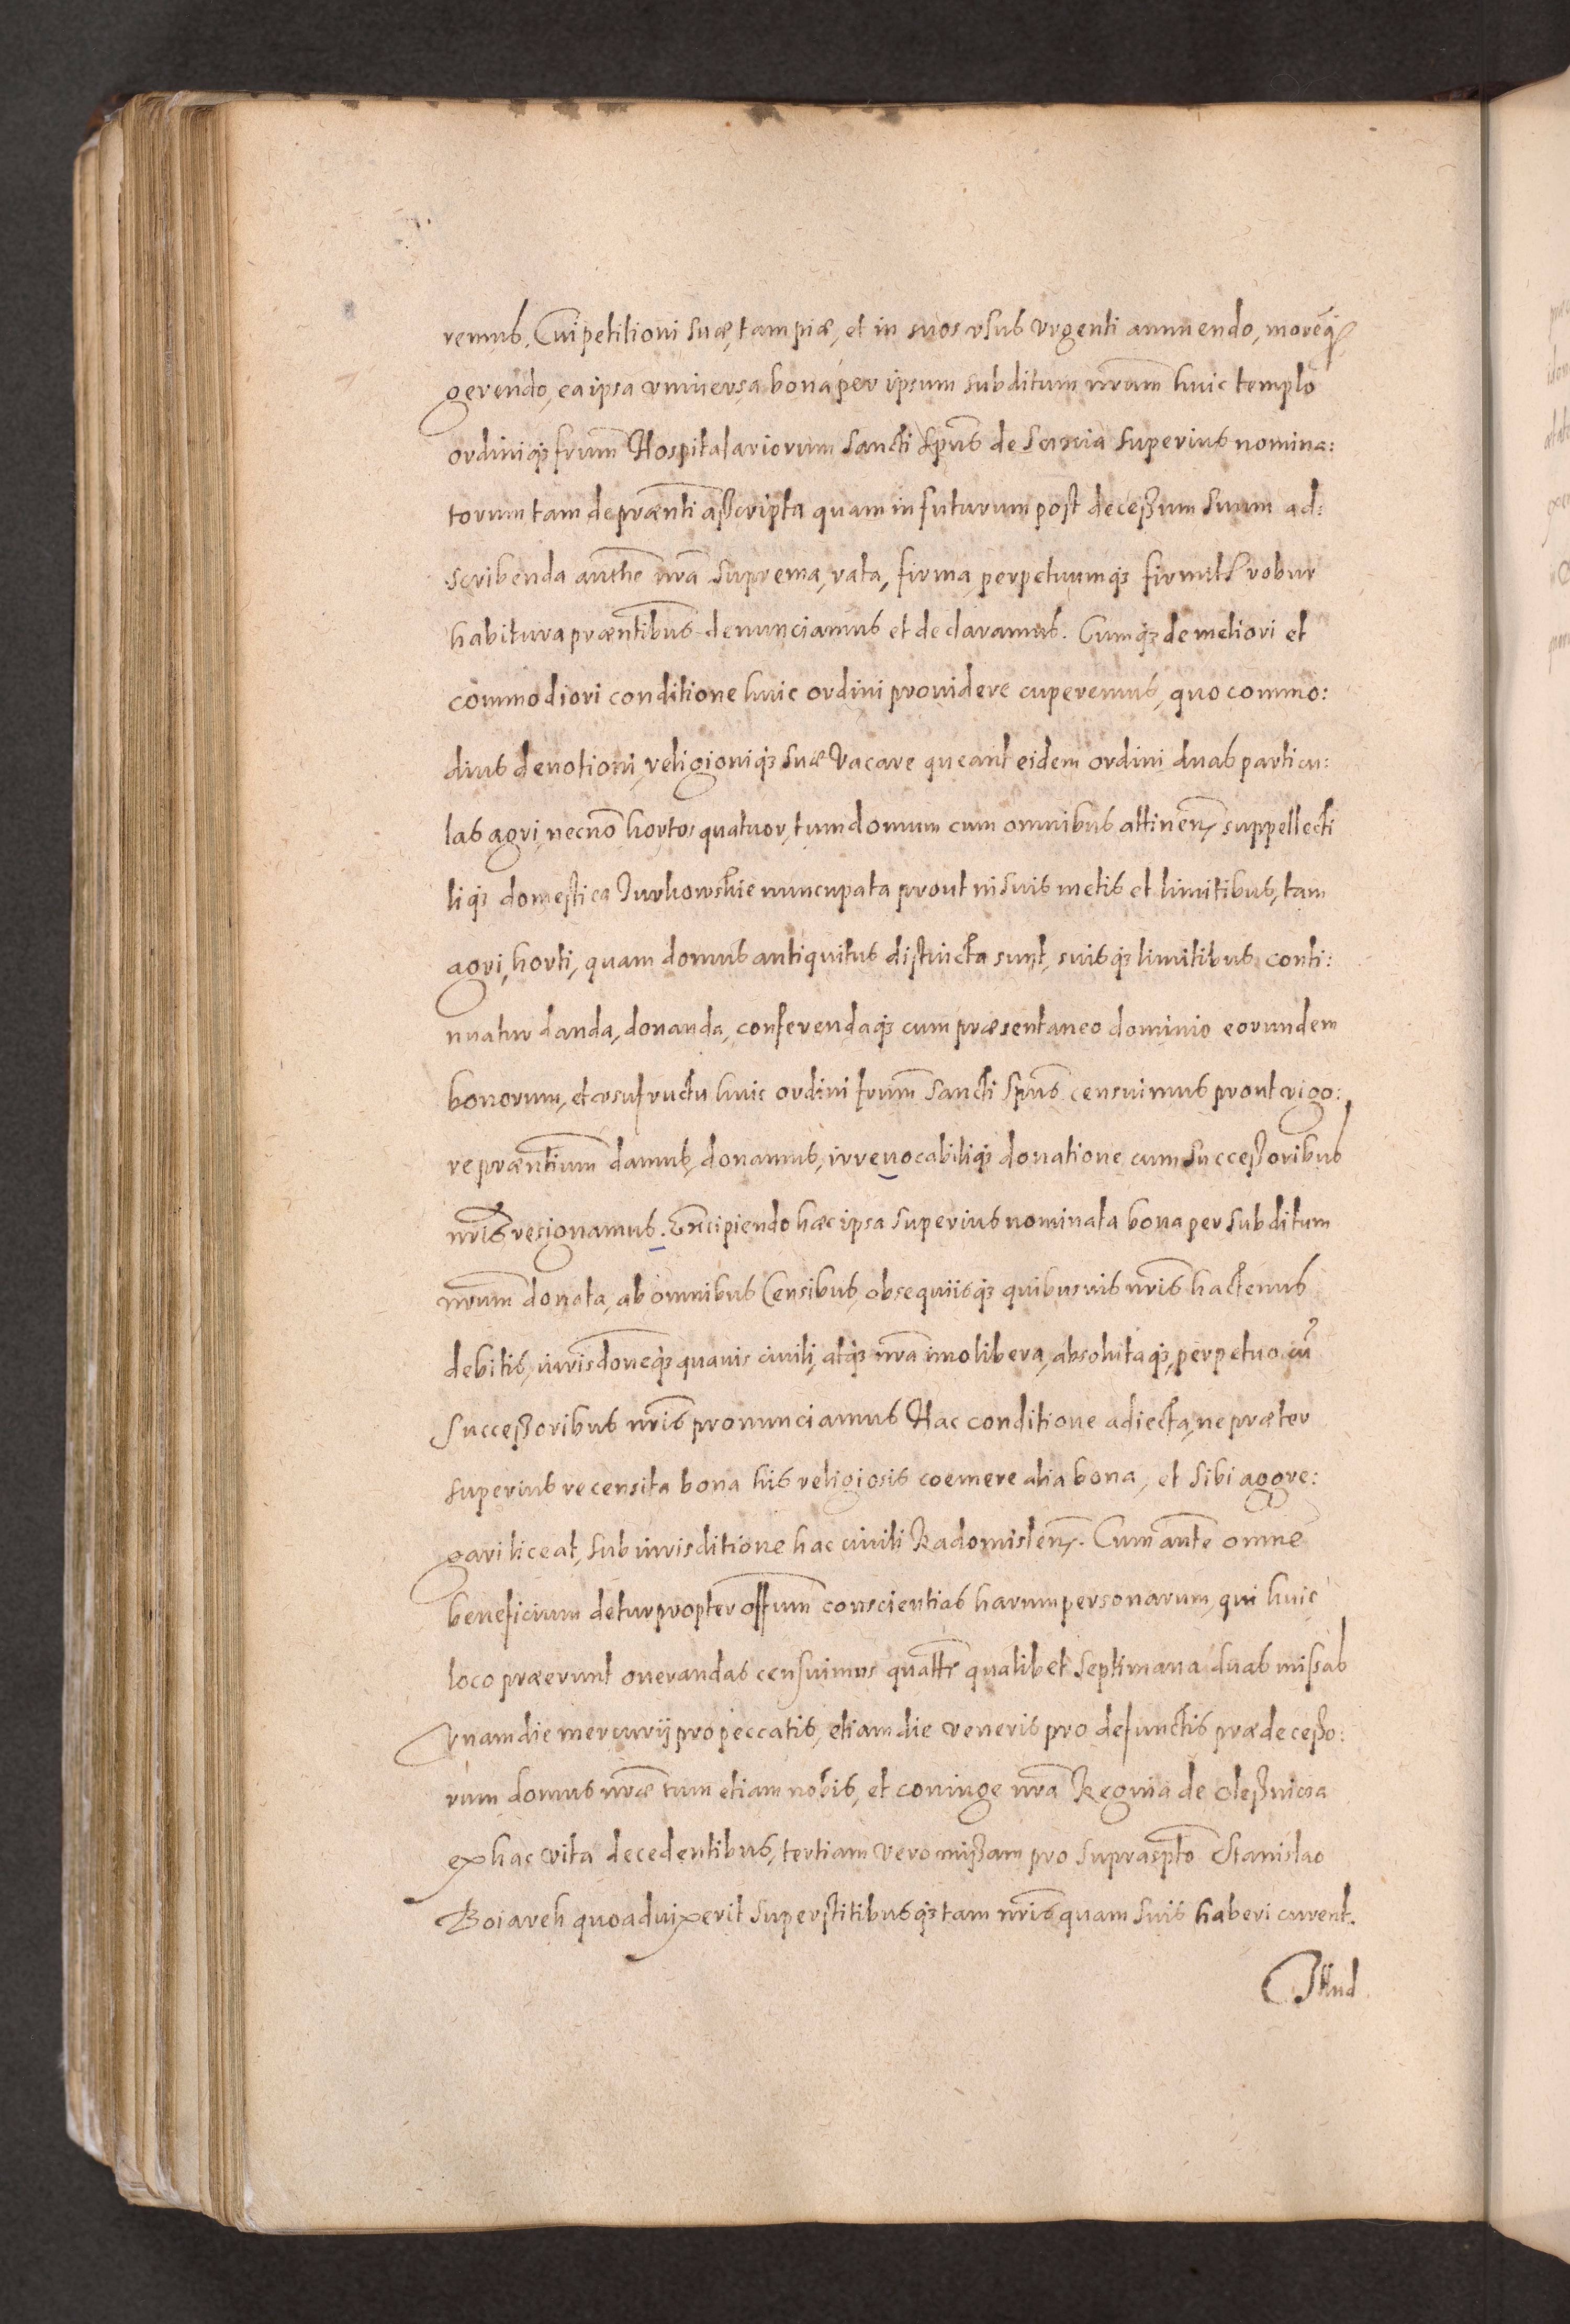 remus. Cui petitioni suæ, tam piæ, et in suos vsus vrgenti annuendo, morẽq́
gerendo, ea ipsa vniuersa bona per ipsum subditum nrum̃ huic templo
ordiniq́ frum̃ Hospitalariorum Sancti Spũs de Saxia superius nomina:
torum tam de præñti asscripta quam in futurum post decessum suum ad:
scribenda auth̃e nrã suprema, rata, firma, perpetuumq́ firmit̃ robur
habitura præñtibus denunciamus et declaramus. Cumq́ de meliori et
commodiori conditione huic ordini prouidere cuperemus, quo commo:
dius deuotioni, religioniq́ suæ vacare queant eidem ordini duas particu:
las agri, necnõ hortos quatuor, tum domum cum omnibus attineñ suppellecti
liq́ domestica Jurkowskie nuncupata prout in suis metis et limitibus, tam
agri, horti, quam domus antiquitus distincta sunt, suisq́ limitibus conti:
nuatur danda, donanda, conferendaq́ cum præsentaneo dominio eorundem
bonorum, et vsufructu huic ordini frum̃ Sancti Spũs censuimus prout vigo:
re præñtium damus, donamus, irreuocabiliq́ donatione cum successoribus
nris̃ resignamus. Excipiendo hæc ipsa superius nominata bona per subditum
nrum̃ donata, ab omnibus Censibus, obsequiisq́ quibusuis nris̃ hactenus
debitis, iurisdoneq́ quauis ciuili, atq́ nrã imo libera, absolutaq́, perpetuo cũ
successoribus nris̃ pronunciamus Hac conditione adiecta, ne præter
superius recensita bona his religiosis coemere alia bona, et sibi aggre:
gari liceat, sub iurisditione hac ciuili Radomisleñ. Cum aũte omnẽ
beneficium detur propter offum̃ conscientias harum personarum, qui huic
loco præerunt onerandas censuimus quat̃t̃ qualibet septimana duas missas
vnam die mercurij pro peccatis, etiam die veneris pro defunctis prædecesso:
rum domus nræ̃ tum etiam nobis, et coniuge nrã Regina de Olessnicza
ex hac vita decedentibus, tertiam vero missam pro suprasp̃to Stanislao
Boiarek quoad vixerit superstitibusq́ tam nris̃ quam suis haberi curent.
Illud